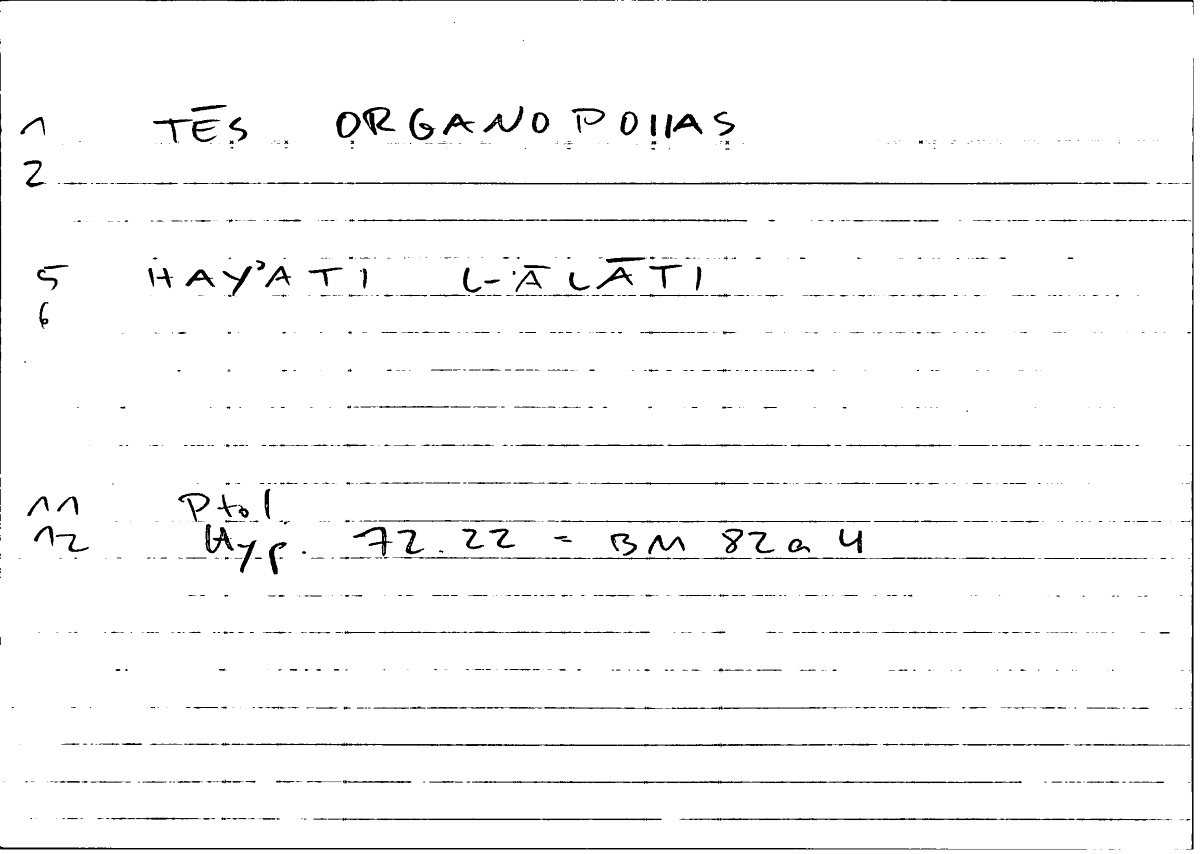 1 TĒS ORGANOPOIIAS
2
5 HAY'ATI L-'ĀLĀTI
6
11 Ptol.
12 Hyp. 72.22 = BM 82a4